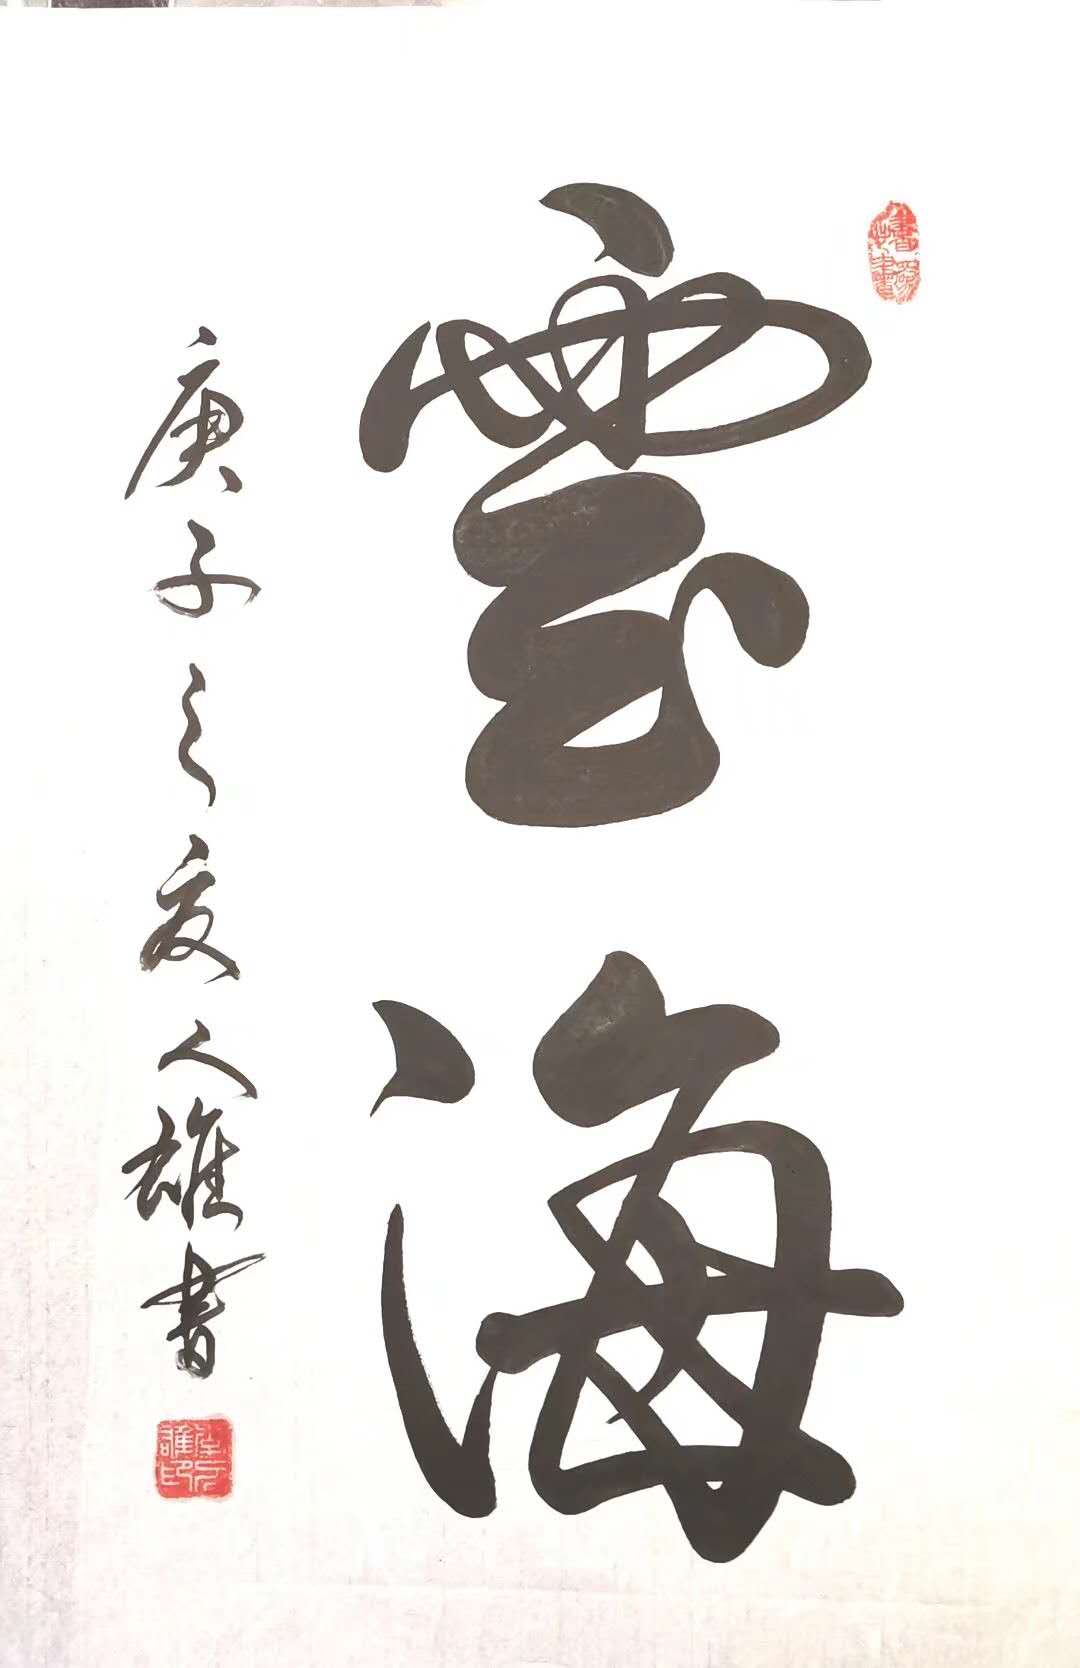 雲海
庚子之夏人雄書